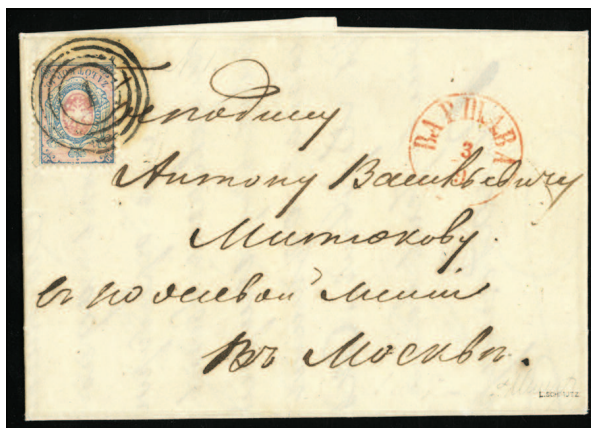 ВАРШАВА
3
Господину
Антону Васильевичу
Митюкову.
въ полевой
Въ Москвѣ.